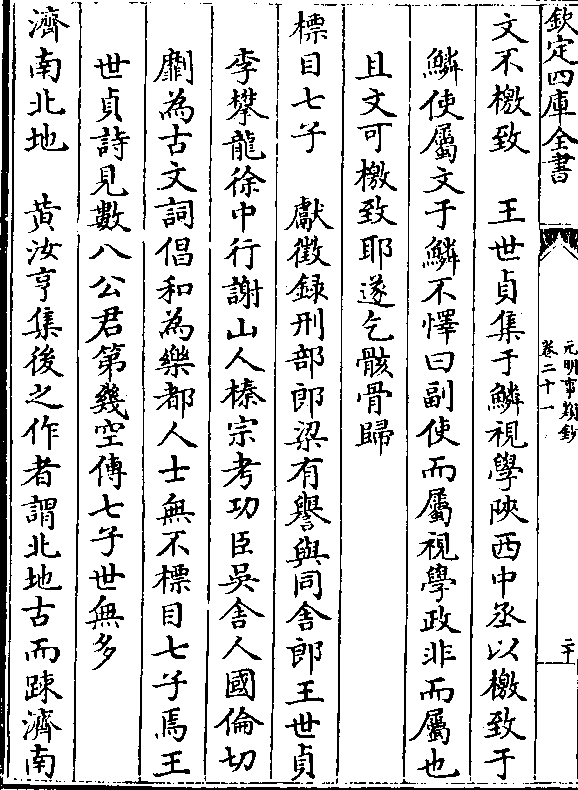 欽定四庫全書
元明事類鈔
卷二十一
二十
文不檄致　王世貞集于鱗視學陝西中丞以檄致于
鱗使屬文于鱗不懌曰副使而屬視學政非而屬也
且文可檄致耶遂乞骸骨歸
標目七子　獻徵録刑部郎梁有譽與同舍郎王世貞
李攀龍徐中行謝山人榛宗考功臣吳舍人國倫切
劘為古文詞倡和為樂都人士無不標目七子焉王
世貞詩見數八公君第幾空傳七子世無多
濟南北地　黄汝亨集後之作者謂北地古而踈濟南